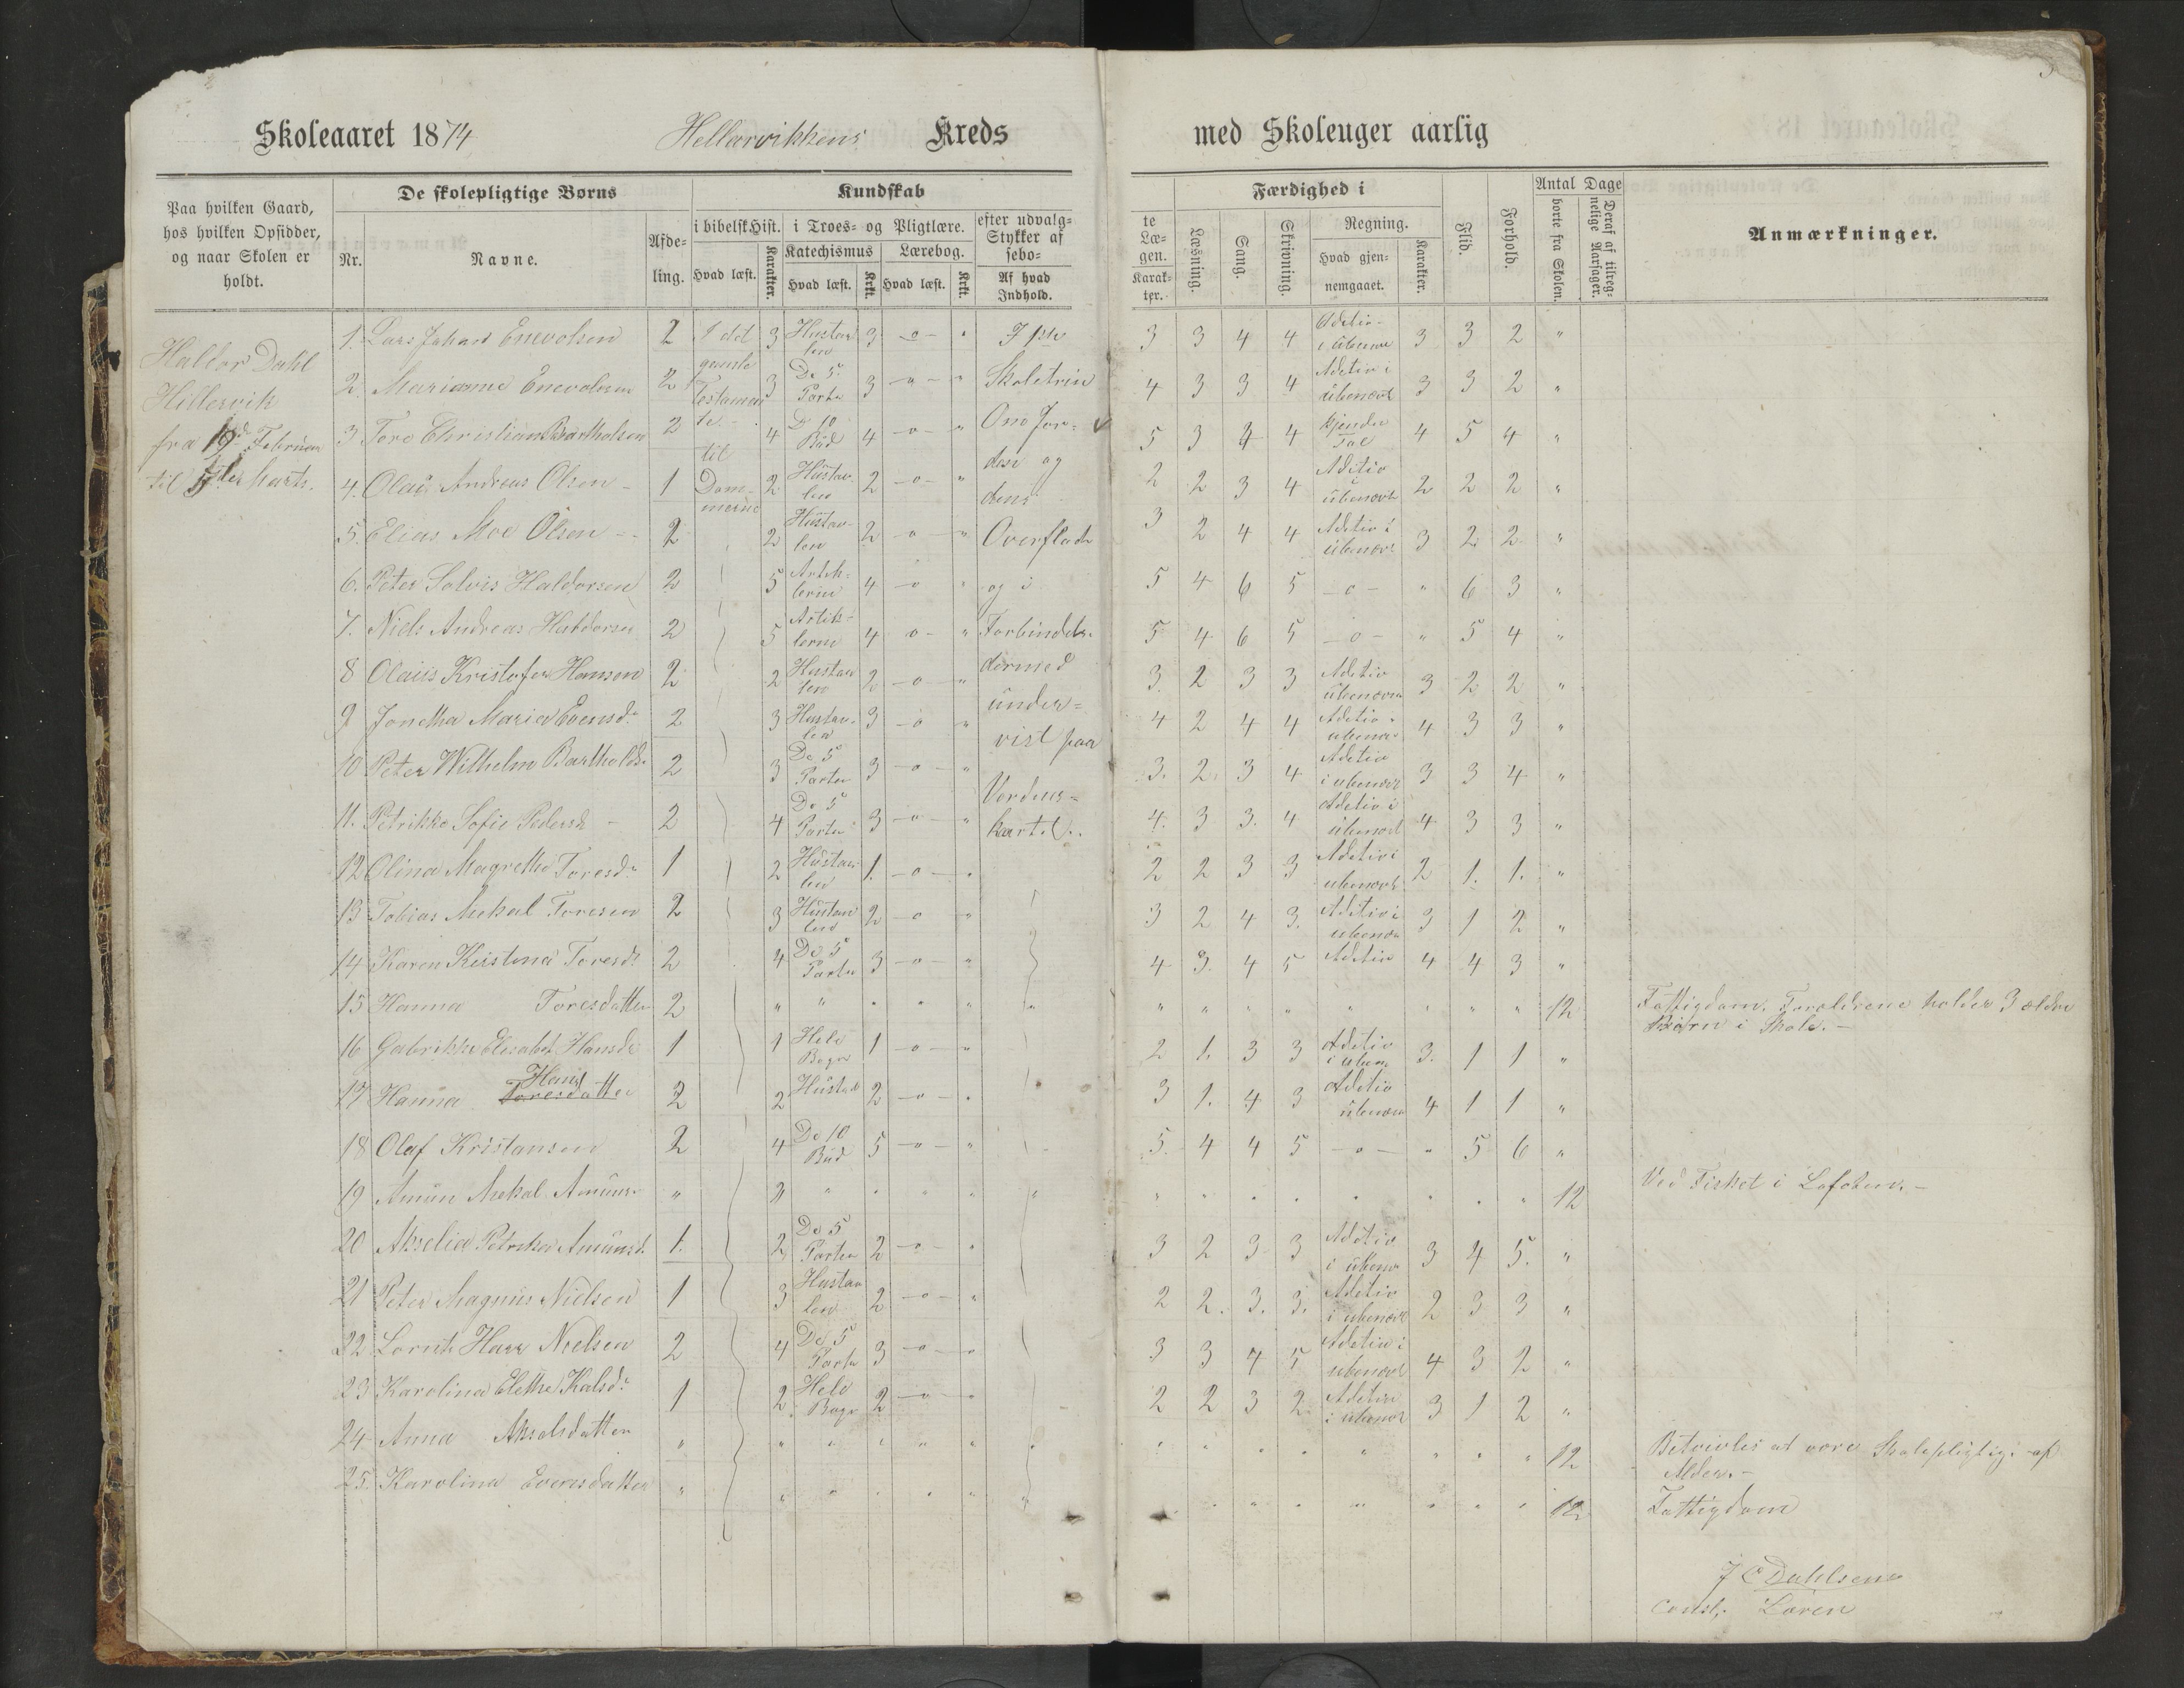 Skoleaaret 1874 Hellarvikkens Kreds
med Skoleuger aarlig
Paa hvilken Gaard, hos hvilken Opsidder, og naar Skolen er holdt.
De skolepligtige Børns
Nr. Navne. Afdeling.
Kundskab
i bibelsk Hist. Hvad læst. Karakter.
i Troes- og Pligtlære.
Katechismus Hvad læst. Krkt.
Lærebog. Hvad læst. Krkt.
efter udvalg- Stykker af sebo-
Af hvad Indhold.
te Læ- gen. Karak- ter.
Færdighed i
Læsning. Sang. Skrivning.
Regning. Hvad gjen- nemgaaet. Karakter.
Flid. Forhold.
Antal Dage
borte fra Skolen.
Deraf af tilreg- nelige Aarsager.
Anmærkninger.
Haldor Dahl
Hillervik
fra 19 Februar
til 5te Marts.
1 del
gamle
Testamen
te
til
Dom-
merne
Skoletrin
Om Jor-
den og
dens
Overflade
og i
Forbindelse
dermed
under-
vist paa
Verdens-
kartet.
1. Lars Johan Enevolsen 2 3 Hustavlen 3 -o- " 3 3 4 4 3 3 2 "
2. Marianne Enevolsen 2 3 De 5 Parter 3 -o- " 4 3 3 4 Aditio i ubenævt 3 3 2 "
3 Tore Christian Bartholsen 2 4 D 10 Bud 4 -o- " 5 3 4 4 kjender Tal 4 5 4 "
4. Olaus Andreas Olsen 1 2 Hustavlen 2 -o- " 2 2 3 4 Aditio i ubenævt 2 2 2 "
5. Elias Moe Olsen 2 2 Hustavlen 2 -o- " 3 2 4 4 Aditio i ubenævt 3 2 2 "
6. Peter Solvis Haldorsen 2 5 Artiklerne 4 -o- " 5 4 6 5 -o- " 6 3 "
7. Niels Andreas Haldorsen 2 5 Artiklerne 4 -o- " 5 4 6 5 -o- " 5 4 "
8 Olaus Kristofer Hansen 2 2 Hustavlen 2 -o- " 3 2 3 3 Aditio ubenævn 3 2 2 "
9 Jonetha Maria Evensd. 2 3 Hustavlen 3 -o- " 4 2 4 4 Aditio 4 3 3 "
10 Peter Wilhelm Bartholds. 2 3 De 5 Parter 3 -o- " 3. 2. 3 4 Aditio i ubenævt 3 3 4 "
11. Petrikke Sofie Pedersd 2 4 De 5 Parter 3 -o- " 4. 3 3. 4 Aditio i ubenævt 4 3 3 "
12 Olina Magrethe Toresd. 1 2 Hustavlen 1. -o- " 2 2 3 3 Aditio i ubenævt 2 1. 1. "
13 Tobias Mekal Toresen 2 3 Hustavlen 2 -o- " 3 2 4 3. Aditio i ubenævn 3 1 2 "
14 Karen Keistina Toresd. 2 4 De 5 Parter 3 -o- " 4 3. 4 5 Aditio 4 4 3 "
15 Hanna Toresdatter 2 " " " " " " " " " " " " " 12 Fattigdom. Foreldrene holder 3 ældre
Børn i Skole.-
16 Gabrikke Elisabet Hansd. 1 1 Hele Bogen 1 -o- " 2 1. 3 3 Aditio i ubenæv 3. 1 1 "
17 Hanna Hans Toresdatter 2 2 Hustav 2 -o- " 3 1. 4 3 Aditio ubenæv 4 1 1 "
18 Olaf Kristansen 2 4 De 10 Bud 5 -o- " 5. 4 4 5 -o- " 5 6 "
19 Amun Mekal Amuns. " " " " " " " " " " " " " 12 Ved Fisket i Lofoten.-
20 Akselia Petrikke Amunsd. 1. 2 De 5 Parter 2 -o- " 3 2 3 3 Aditio i ubenæv 3 4 5. "
21 Peter Magnus Nielsen 1 3 Hustavlen 2 -o- " 2 2. 3. 3. Aditio i ubenævt 2 3 3 "
22 Nielsen 2 4 De 5 Parter 3 -o- " 3 3 4 5 Aditio i ubenævt 4 3 2 "
23 Karolina Elethe Kalsd. 1 2 Hele Bogen 2 -o- " 2 2 3 2 Aditio i ubenævt 3 1 2 "
24 Anna Akselsdatter " " " " " " " " " " " " " 12 Betvivles at være Skolepligtig af
Alder.-
25. Karolina Evensdatter " " " " " " " " " " " " " 12 Fattigdom
J C Dahlsen
Const. Lærer